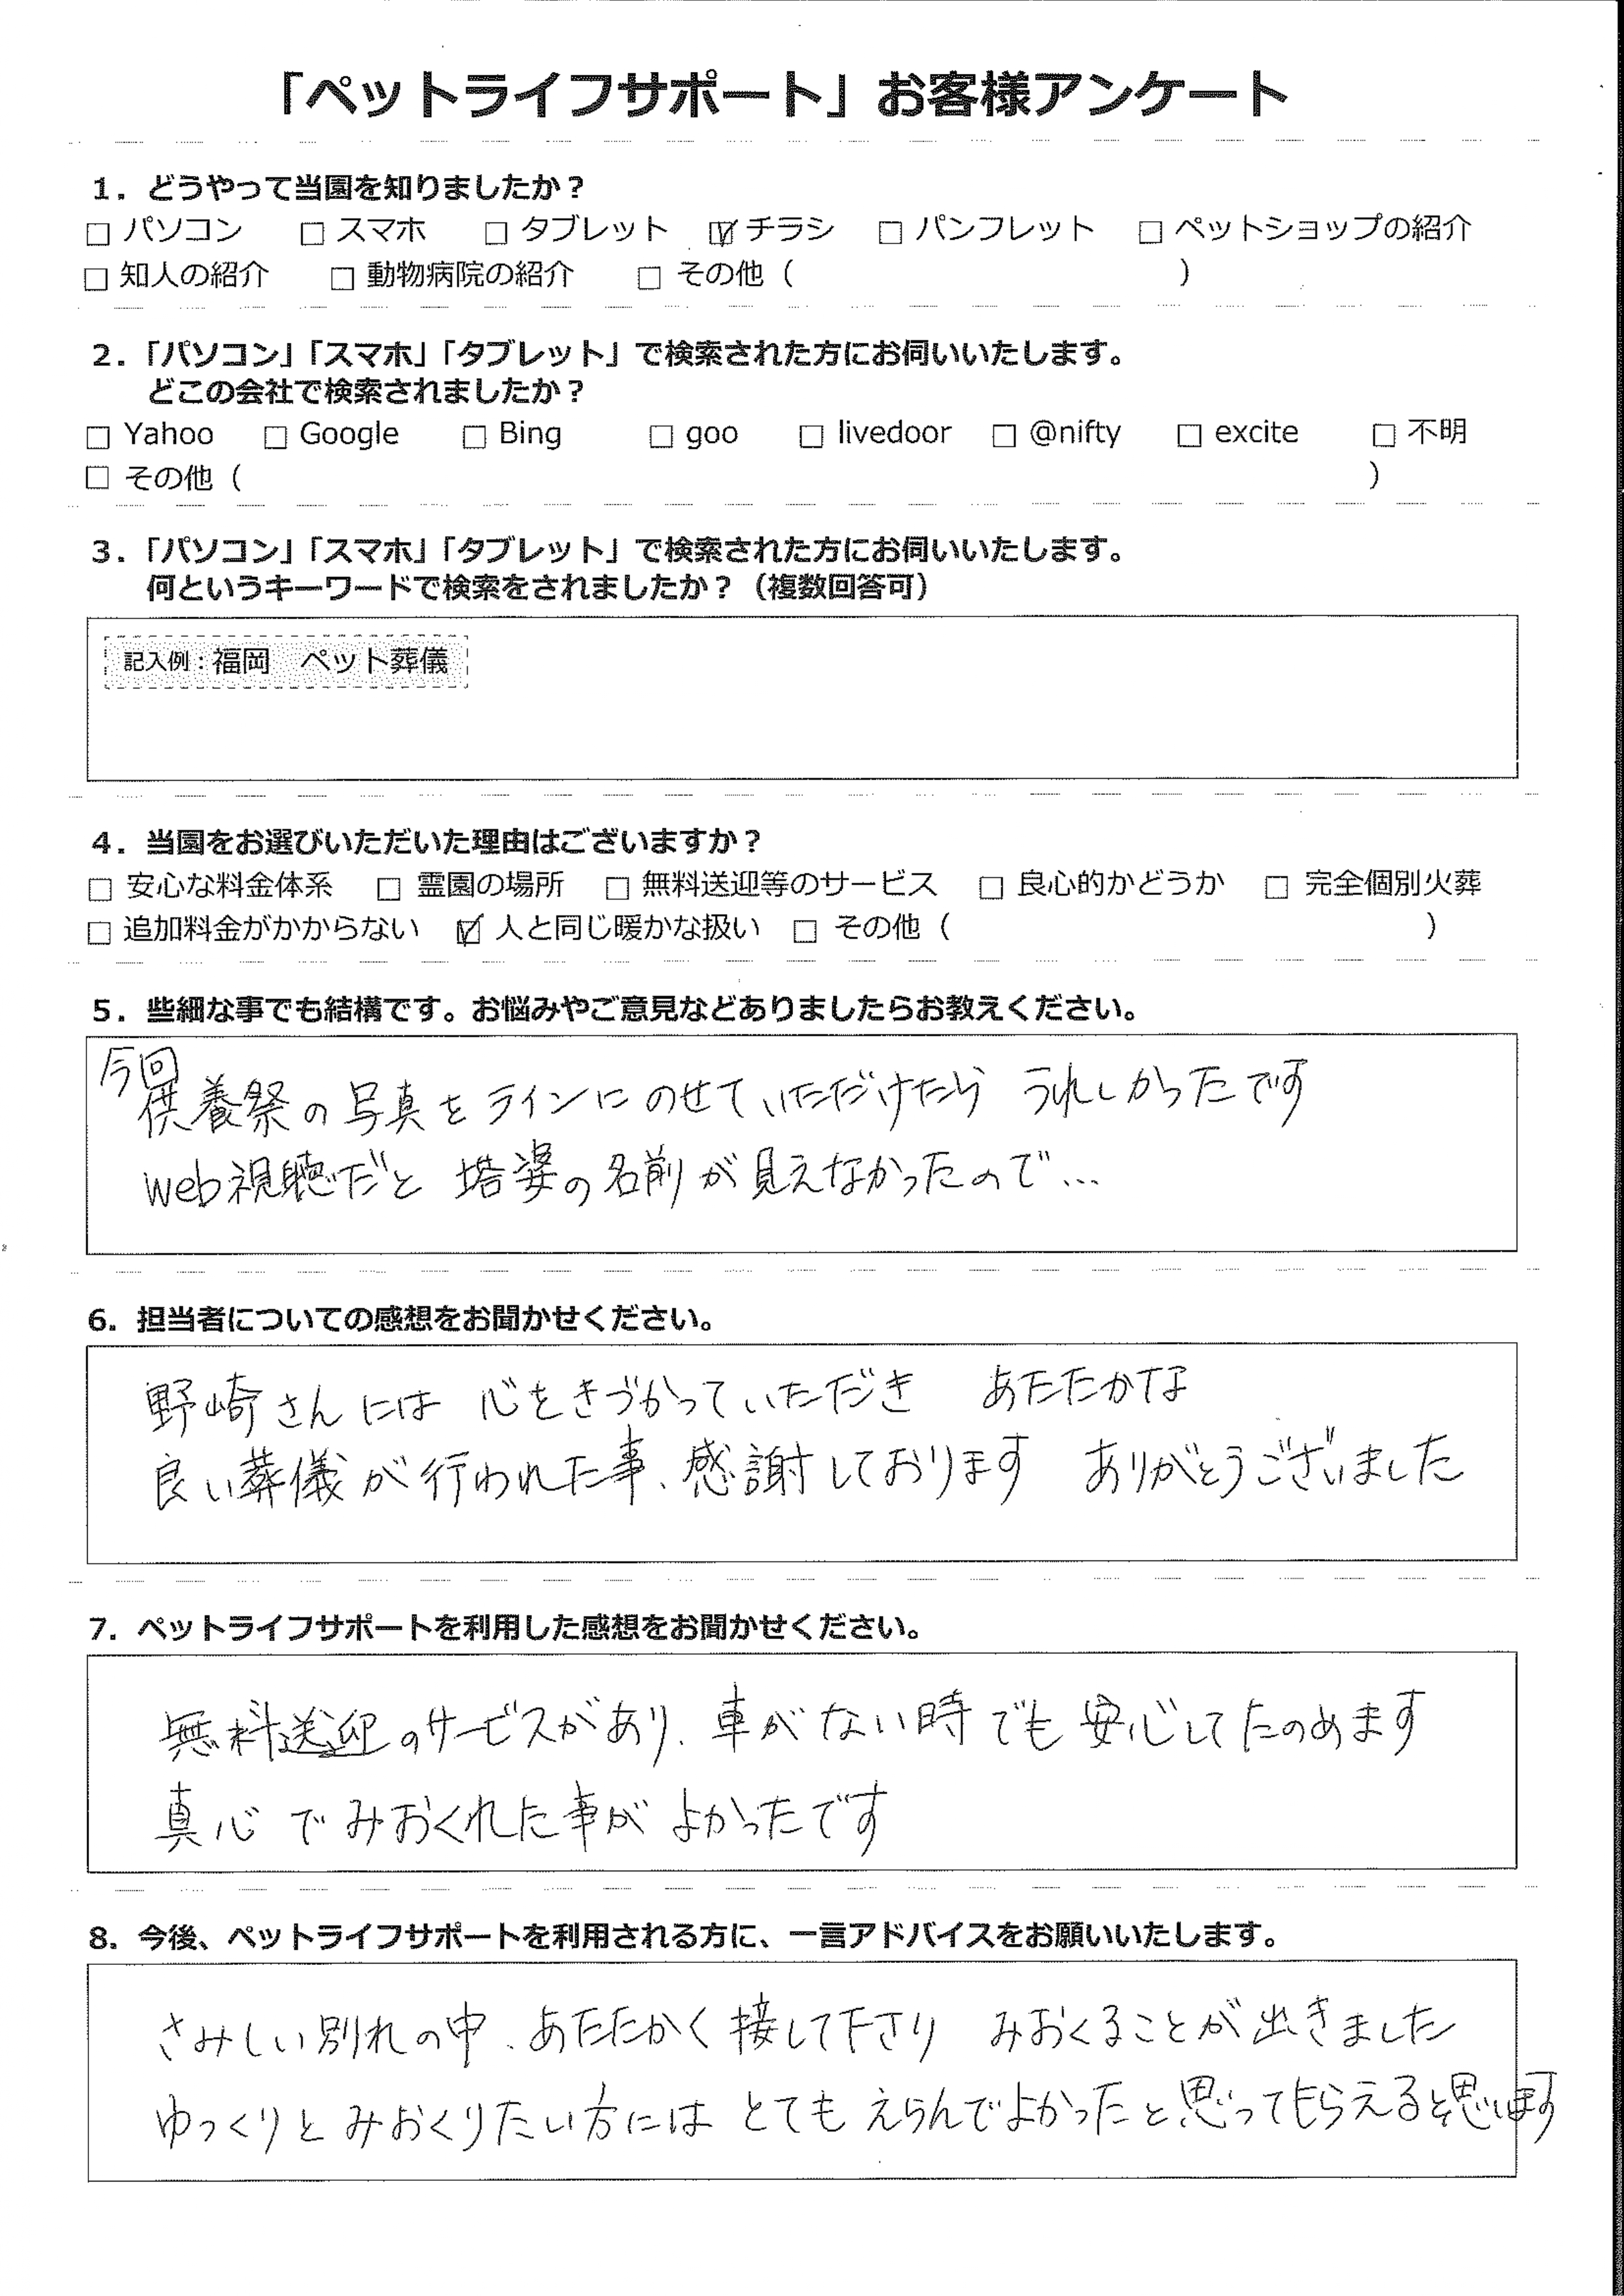 「ペットライフサポート」お客様アンケート
1．どうやって当園を知りましたか？
□ パソコン □ スマホ □ タブレット ☑ チラシ □ パンフレット □ ペットショップの紹介
□ 知人の紹介 □ 動物病院の紹介 □ その他（ ）
2．「パソコン」「スマホ」「タブレット」で検索された方にお伺いいたします。
どこの会社で検索されましたか？
□ Yahoo □ Google □ Bing □ goo □ livedoor □ @nifty □ excite □ 不明
□ その他（ ）
3．「パソコン」「スマホ」「タブレット」で検索された方にお伺いいたします。
何というキーワードで検索をされましたか？（複数回答可）
記入例：福岡　ペット葬儀
4．当園をお選びいただいた理由はございますか？
□ 安心な料金体系 □ 霊園の場所 □ 無料送迎等のサービス □ 良心的かどうか □ 完全個別火葬
□ 追加料金がかからない ☑ 人と同じ暖かな扱い □ その他（ ）
5．些細な事でも結構です。お悩みやご意見などありましたらお教えください。
今回
供養祭の写真をラインにのせていただけたら うれしかったです
web視聴だと 塔婆の名前が見えなかったので…
6．担当者についての感想をお聞かせください。
野崎さんには 心をきづかっていただき あたたかな
良い葬儀が行われた事、感謝しております ありがとうございました
7．ペットライフサポートを利用した感想をお聞かせください。
無料送迎のサービスがあり、車がない時でも安心してたのめます
真心でみおくれた事がよかったです
8．今後、ペットライフサポートを利用される方に、一言アドバイスをお願いいたします。
さみしい別れの中、あたたかく接して下さり みおくることが出きました
ゆっくりとみおくりたい方には とてもえらんでよかったと思ってもらえると思います